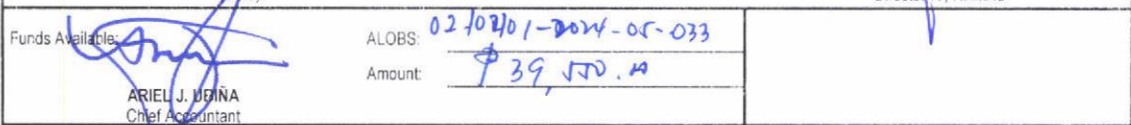 Funds Available:
ALOBS: 02/0201-2024-05-033
Amount: ₱ 39,550.00
ARIEL J. UBIÑA
Chief Accountant